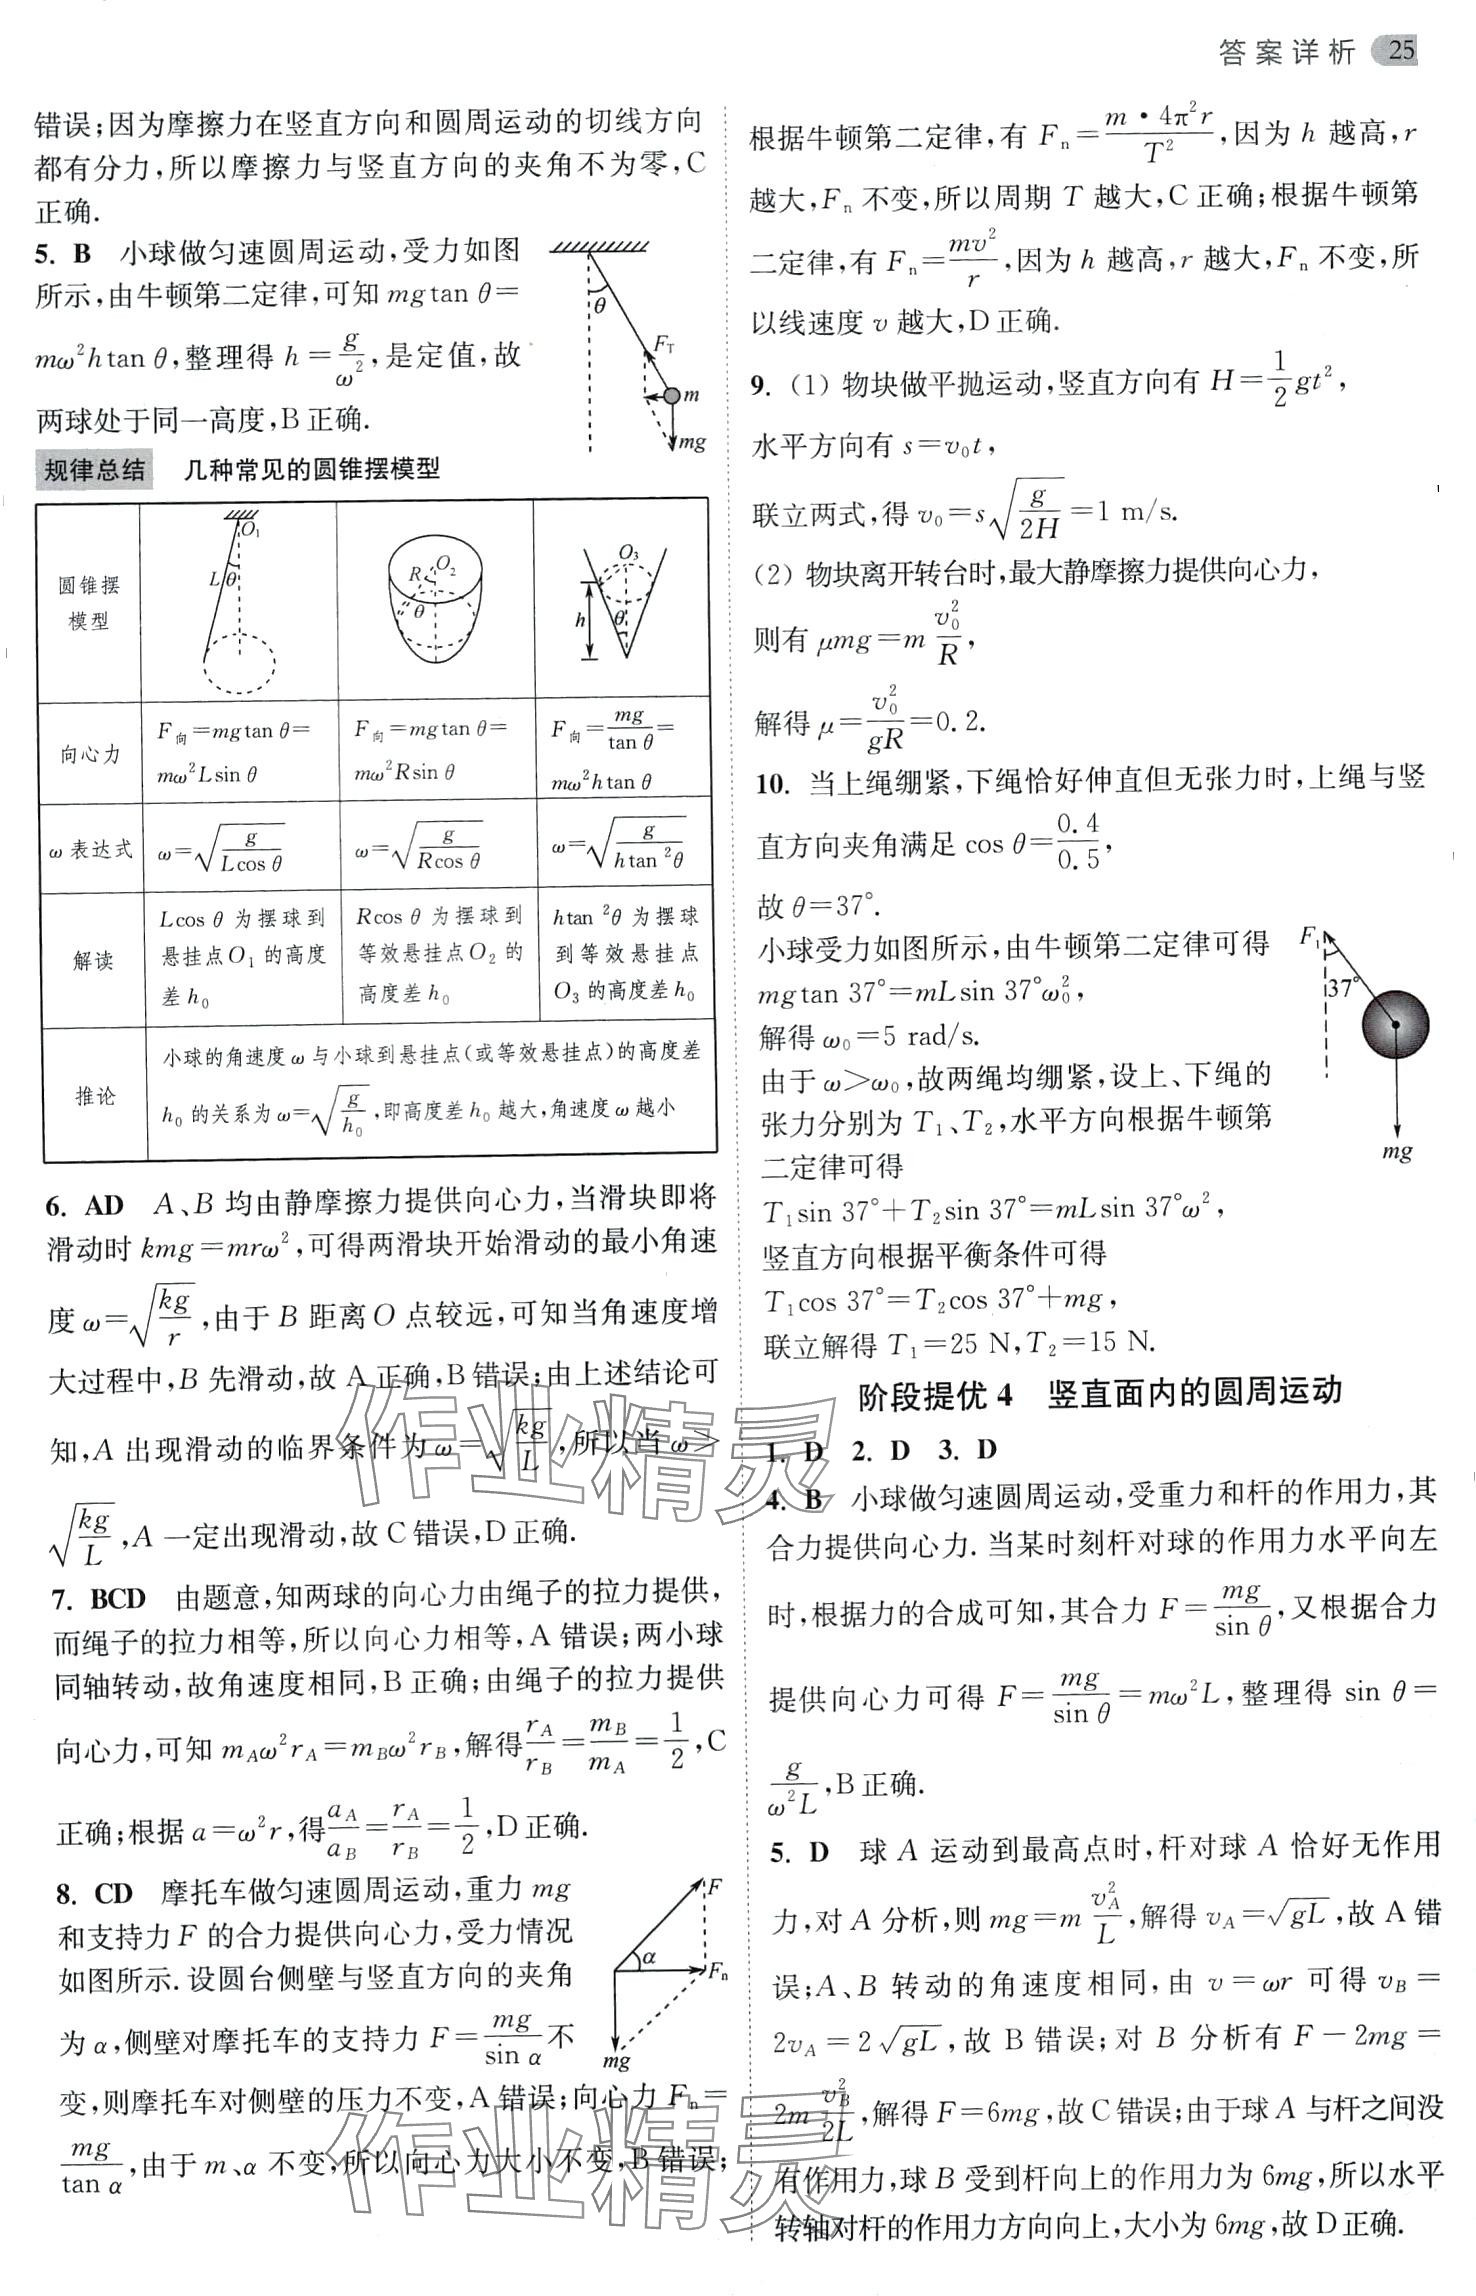 答案详析 25
错误;因为摩擦力在竖直方向和圆周运动的切线方向
都有分力,所以摩擦力与竖直方向的夹角不为零,C
正确.
5. B 小球做匀速圆周运动,受力如图
所示,由牛顿第二定律,可知 mgtan θ=
mω²htan θ,整理得 h=g/ω²,是定值,故
两球处于同一高度,B正确.
θ
F_T
m
mg
规律总结 几种常见的圆锥摆模型
圆锥摆
模型
O₁
L
θ
R
O₂
θ
O₃
h
θ
向心力
F向=mgtan θ=
mω²Lsin θ
F向=mgtan θ=
mω²Rsin θ
F向=mg/tan θ=
mω²htan θ
ω表达式
ω=√(g/(Lcos θ))
ω=√(g/(Rcos θ))
ω=√(g/(htan²θ))
解读
Lcos θ 为摆球到
悬挂点O₁的高度
差h₀
Rcos θ 为摆球到
等效悬挂点O₂的
高度差h₀
htan²θ 为摆球
到等效悬挂点
O₃的高度差h₀
推论
小球的角速度ω与小球到悬挂点(或等效悬挂点)的高度差
h₀的关系为ω=√(g/h₀),即高度差h₀越大,角速度ω越小
6. AD A、B均由静摩擦力提供向心力,当滑块即将
滑动时 kmg=mrω²,可得两滑块开始滑动的最小角速
度 ω=√(kg/r),由于 B 距离 O 点较远,可知当角速度增
大过程中,B先滑动,故 A 正确,B错误;由上述结论可
知,A 出现滑动的临界条件为 ω=√(kg/L),所以当 ω>
√(kg/L),A 一定出现滑动,故C错误,D正确.
7. BCD 由题意,知两球的向心力由绳子的拉力提供,
而绳子的拉力相等,所以向心力相等,A 错误;两小球
同轴转动,故角速度相同,B 正确;由绳子的拉力提供
向心力,可知 m_Aω²r_A=m_Bω²r_B,解得r_A/r_B=m_B/m_A=1/2,C
正确;根据 a=ω²r,得a_A/a_B=r_A/r_B=1/2,D正确.
8. CD 摩托车做匀速圆周运动,重力 mg
和支持力 F 的合力提供向心力,受力情况
如图所示.设圆台侧壁与竖直方向的夹角
为 α,侧壁对摩托车的支持力 F=mg/sin α不
变,则摩托车对侧壁的压力不变,A错误;向心力 Fₙ=
mg/tan α,由于 m、α 不变,所以向心力大小不变,B错误;
F
α
Fₙ
mg
根据牛顿第二定律,有 Fₙ=m·4π²r/T²,因为 h 越高,r
越大,Fₙ 不变,所以周期 T 越大,C正确;根据牛顿第
二定律,有 Fₙ=mv²/r,因为 h 越高,r 越大,Fₙ 不变,所
以线速度 v 越大,D正确.
9. (1) 物块做平抛运动,竖直方向有 H=1/2gt²,
水平方向有 s=v₀t,
联立两式,得 v₀=s√(g/2H)=1 m/s.
(2) 物块离开转台时,最大静摩擦力提供向心力,
则有 μmg=m v₀²/R,
解得 μ=v₀²/gR=0.2.
10. 当上绳绷紧,下绳恰好伸直但无张力时,上绳与竖
直方向夹角满足 cos θ=0.4/0.5,
故 θ=37°.
小球受力如图所示,由牛顿第二定律可得
mgtan 37°=mLsin 37°ω₀²,
解得 ω₀=5 rad/s.
由于 ω>ω₀,故两绳均绷紧,设上、下绳的
张力分别为 T₁、T₂,水平方向根据牛顿第
二定律可得
T₁sin 37°+T₂sin 37°=mLsin 37°ω²,
竖直方向根据平衡条件可得
T₁cos 37°=T₂cos 37°+mg,
联立解得 T₁=25 N,T₂=15 N.
F₁
37°
mg
阶段提优4 竖直面内的圆周运动
1. D 2. D 3. D
4. B 小球做匀速圆周运动,受重力和杆的作用力,其
合力提供向心力.当某时刻杆对球的作用力水平向左
时,根据力的合成可知,其合力 F=mg/sin θ,又根据合力
提供向心力可得 F=mg/sin θ=mω²L,整理得 sin θ=
g/ω²L,B正确.
5. D 球 A 运动到最高点时,杆对球 A 恰好无作用
力,对 A 分析,则 mg=m v_A²/L,解得 v_A=√gL,故 A 错
误;A、B 转动的角速度相同,由 v=ωr 可得 v_B=
2v_A=2√gL,故 B 错误;对 B 分析有 F-2mg=
2m v_B²/2L,解得F=6mg,故C错误;由于球A与杆之间没
有作用力,球B受到杆向上的作用力为6mg,所以水平
转轴对杆的作用力方向向上,大小为6mg,故D正确.
作业精灵
作业精灵